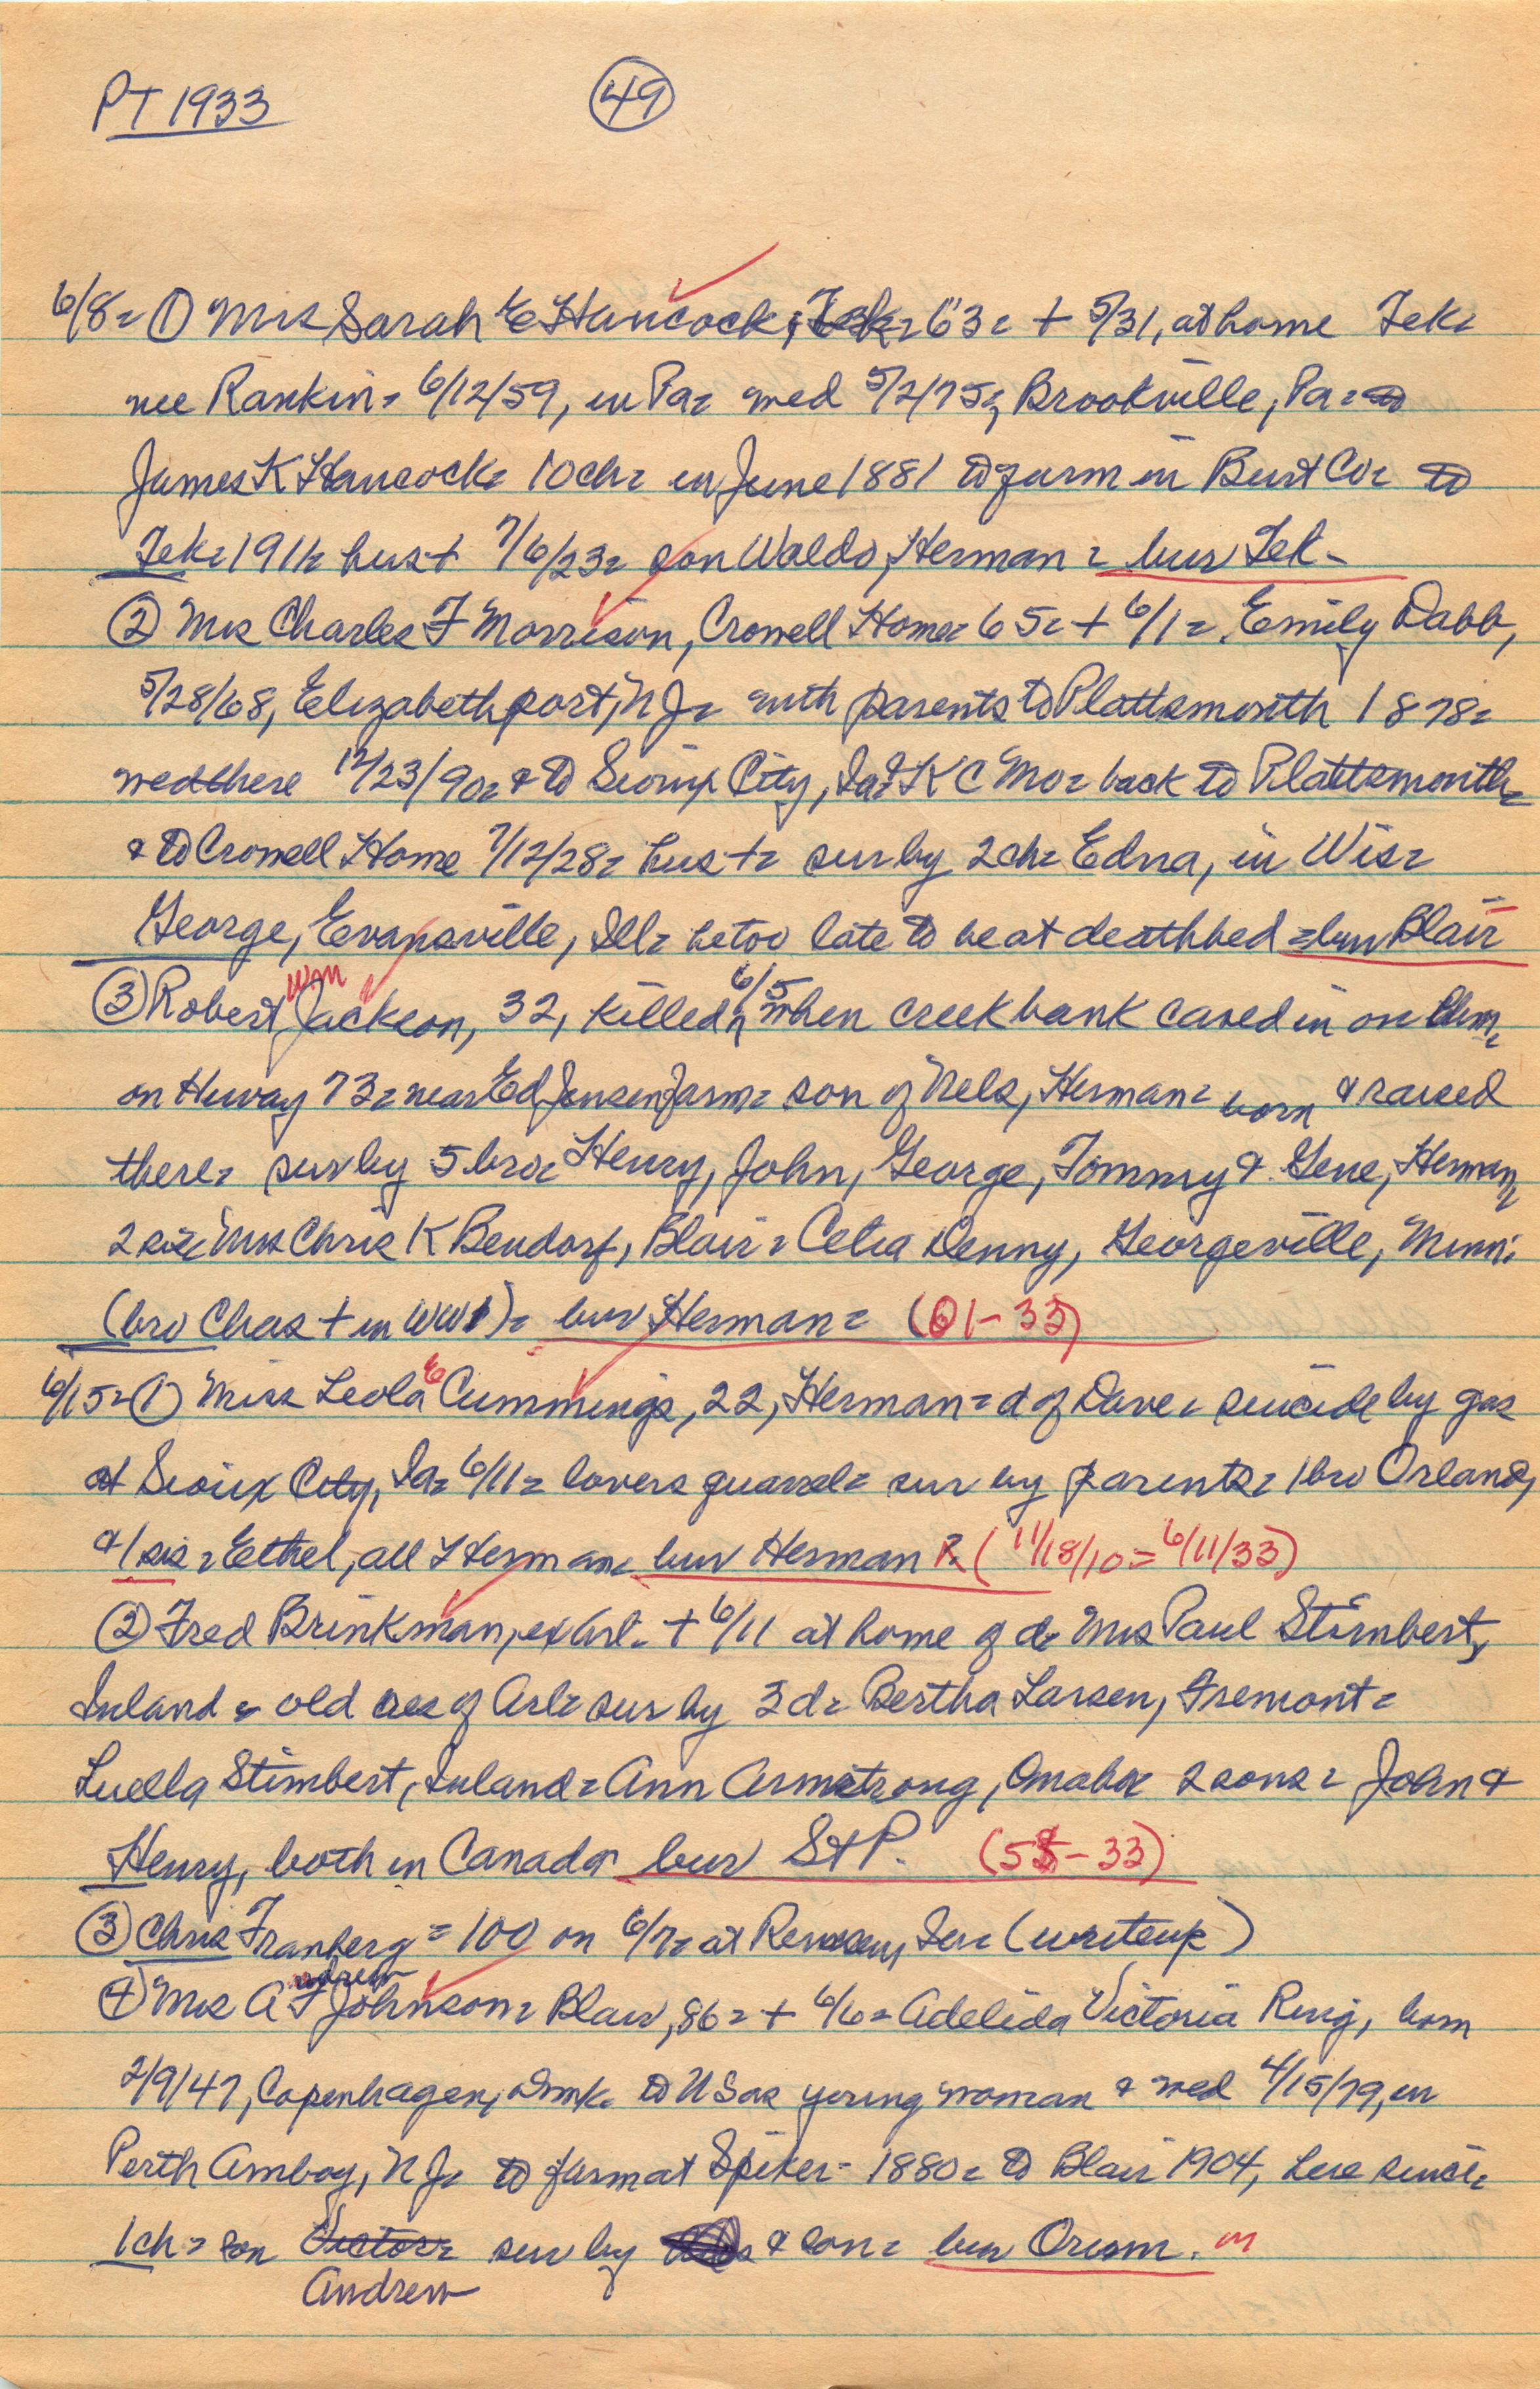 PT 1933
49
6/8= ① Mrs Sarah E Hancock, 63= + 5/31, at home Tek=
nee Rankin= 6/12/59, in Pa= wed 5/2/75=, Brookville, Pa= to
James K Hancock= 10 ch= in June 1881 to farm in Burt Co= to
Tek= 1911= hus + 7/6/23= son Waldo, Herman = bur Tek-
② Mrs Charles F Morrison, Crowell Home= 65= + 6/1= Emily Dabb,
5/28/68, Elizabethport, N J= with parents to Plattsmouth 1878=
wed there 12/23/90= & to Sioux City, Ia= K C Mo= back to Plattsmouth=
& to Crowell Home 7/12/28= hus += sur by 2 ch= Edna, in Wis=
George, Evansville, Ill= he too late to be at deathbed = bur Blair
③ Robert Wm Jackson, 32, killed 6/5 when creek bank caved in on him,
on Hiway 73= near Ed Jensen farm= son of Nels, Herman= born & raised
there= sur by 5 bro= Henry, John, George, Tommy & Gene, Herman,
2 sis= Mrs Chris K Bendorf, Blair= Celia Denny, Georgeville, Minn.
(bro Chas + in WW1)= bur Herman= (01-33)
6/15= ① Miss Leola E Cummings, 22, Herman= d of Dave= suicide by gas
at Sioux City, Ia= 6/11= lovers quarrel= sur by parents= 1 bro Orland,
& 1 sis= Ethel, all Herman= bur Herman R (11/18/10= 6/11/33)
② Fred Brinkman, ex Arl- + 6/11 at home of d- Mrs Paul Stimbert,
Inland= old res of Arl= sur by 3 d= Bertha Larsen, Fremont=
Luella Stimbert, Inland= Ann Armstrong, Omaha= 2 sons= John &
Henry, both in Canada bur St P. (55-33)
③ Chris Franberg = 100 on 6/7= at Ia= (writeup)
④ Mrs Andrew F Johnson= Blair, 86= + 6/6= Adelida Victoria Ring, born
2/9/47, Copenhagen, Dmk= to US as young woman & wed 4/15/79, in
Perth Amboy, N J= to farm at Spiker- 1880= to Blair 1904, here since=
1 ch= son Victor= Andrew sur by & son= bur Orum. m